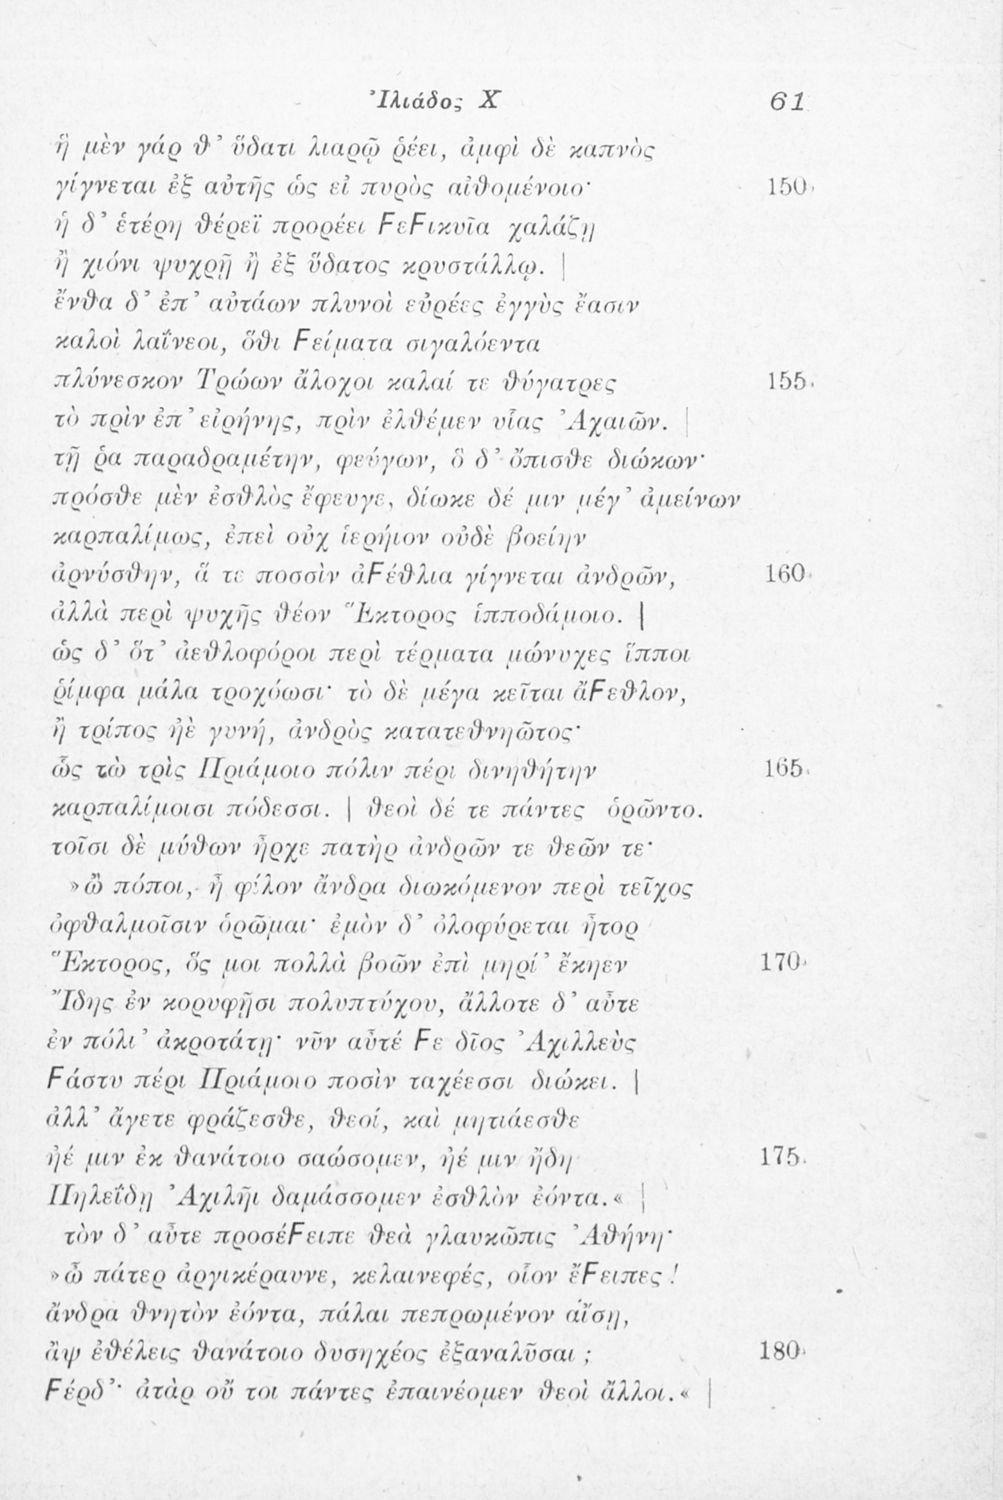 Ἰλιάδος Χ 61
ἣ μὲν γάρ θ’ ὕδατι λιαρῷ ῥέει, ἀμφὶ δὲ καπνὸς
γίγνεται ἐξ αὐτῆς ὡς εἰ πυρὸς αἰθομένοιο· 150
ἡ δ’ ἑτέρη θέρεϊ προρέει ϜεϜικυῖα χαλάζῃ
ἢ χιόνι ψυχρῇ ἢ ἐξ ὕδατος κρυστάλλῳ. |
ἔνθα δ’ ἐπ’ αὐτάων πλυνοὶ εὐρέες ἐγγὺς ἔασιν
καλοὶ λαΐνεοι, ὅθι Ϝείματα σιγαλόεντα
πλύνεσκον Τρώων ἄλοχοι καλαί τε θύγατρες 155
τὸ πρὶν ἐπ’ εἰρήνης, πρὶν ἐλθέμεν υἷας Ἀχαιῶν. |
τῇ ῥα παραδραμέτην, φεύγων, ὃ δ’ ὄπισθε διώκων·
πρόσθε μὲν ἐσθλὸς ἔφευγε, δίωκε δέ μιν μέγ’ ἀμείνων
καρπαλίμως, ἐπεὶ οὐχ ἱερήιον οὐδὲ βοείην
ἀρνύσθην, ἅ τε ποσσὶν ἀϜέθλια γίγνεται ἀνδρῶν, 160
ἀλλὰ περὶ ψυχῆς θέον Ἕκτορος ἱπποδάμοιο. |
ὡς δ’ ὅτ’ ἀεθλοφόροι περὶ τέρματα μώνυχες ἵπποι
ῥίμφα μάλα τροχόωσι· τὸ δὲ μέγα κεῖται ἄϜεθλον,
ἢ τρίπος ἠὲ γυνή, ἀνδρὸς κατατεθνηῶτος·
ὣς τὼ τρὶς Πριάμοιο πόλιν πέρι δινηθήτην 165
καρπαλίμοισι πόδεσσι. | θεοὶ δέ τε πάντες ὁρῶντο.
τοῖσι δὲ μύθων ἦρχε πατὴρ ἀνδρῶν τε θεῶν τε·
»ὢ πόποι, ἦ φίλον ἄνδρα διωκόμενον περὶ τεῖχος
ὀφθαλμοῖσιν ὁρῶμαι· ἐμὸν δ’ ὀλοφύρεται ἦτορ
Ἕκτορος, ὅς μοι πολλὰ βοῶν ἐπὶ μηρί’ ἔκηεν 170
Ἴδης ἐν κορυφῇσι πολυπτύχου, ἄλλοτε δ’ αὖτε
ἐν πόλι’ ἀκροτάτῃ· νῦν αὖτέ Ϝε δῖος Ἀχιλλεὺς
Ϝάστυ πέρι Πριάμοιο ποσὶν ταχέεσσι διώκει. |
ἀλλ’ ἄγετε φράζεσθε, θεοί, καὶ μητιάεσθε
ἠέ μιν ἐκ θανάτοιο σαώσομεν, ἠέ μιν ἤδη 175
Πηλεΐδῃ Ἀχιλῆι δαμάσσομεν ἐσθλὸν ἐόντα.« |
τὸν δ’ αὖτε προσέϜειπε θεὰ γλαυκῶπις Ἀθήνη·
»ὦ πάτερ ἀργικέραυνε, κελαινεφές, οἷον ἔϜειπες!
ἄνδρα θνητὸν ἐόντα, πάλαι πεπρωμένον αἴσῃ,
ἂψ ἐθέλεις θανάτοιο δυσηχέος ἐξαναλῦσαι; 180
Ϝέρδ’· ἀτὰρ οὔ τοι πάντες ἐπαινέομεν θεοὶ ἄλλοι.« |